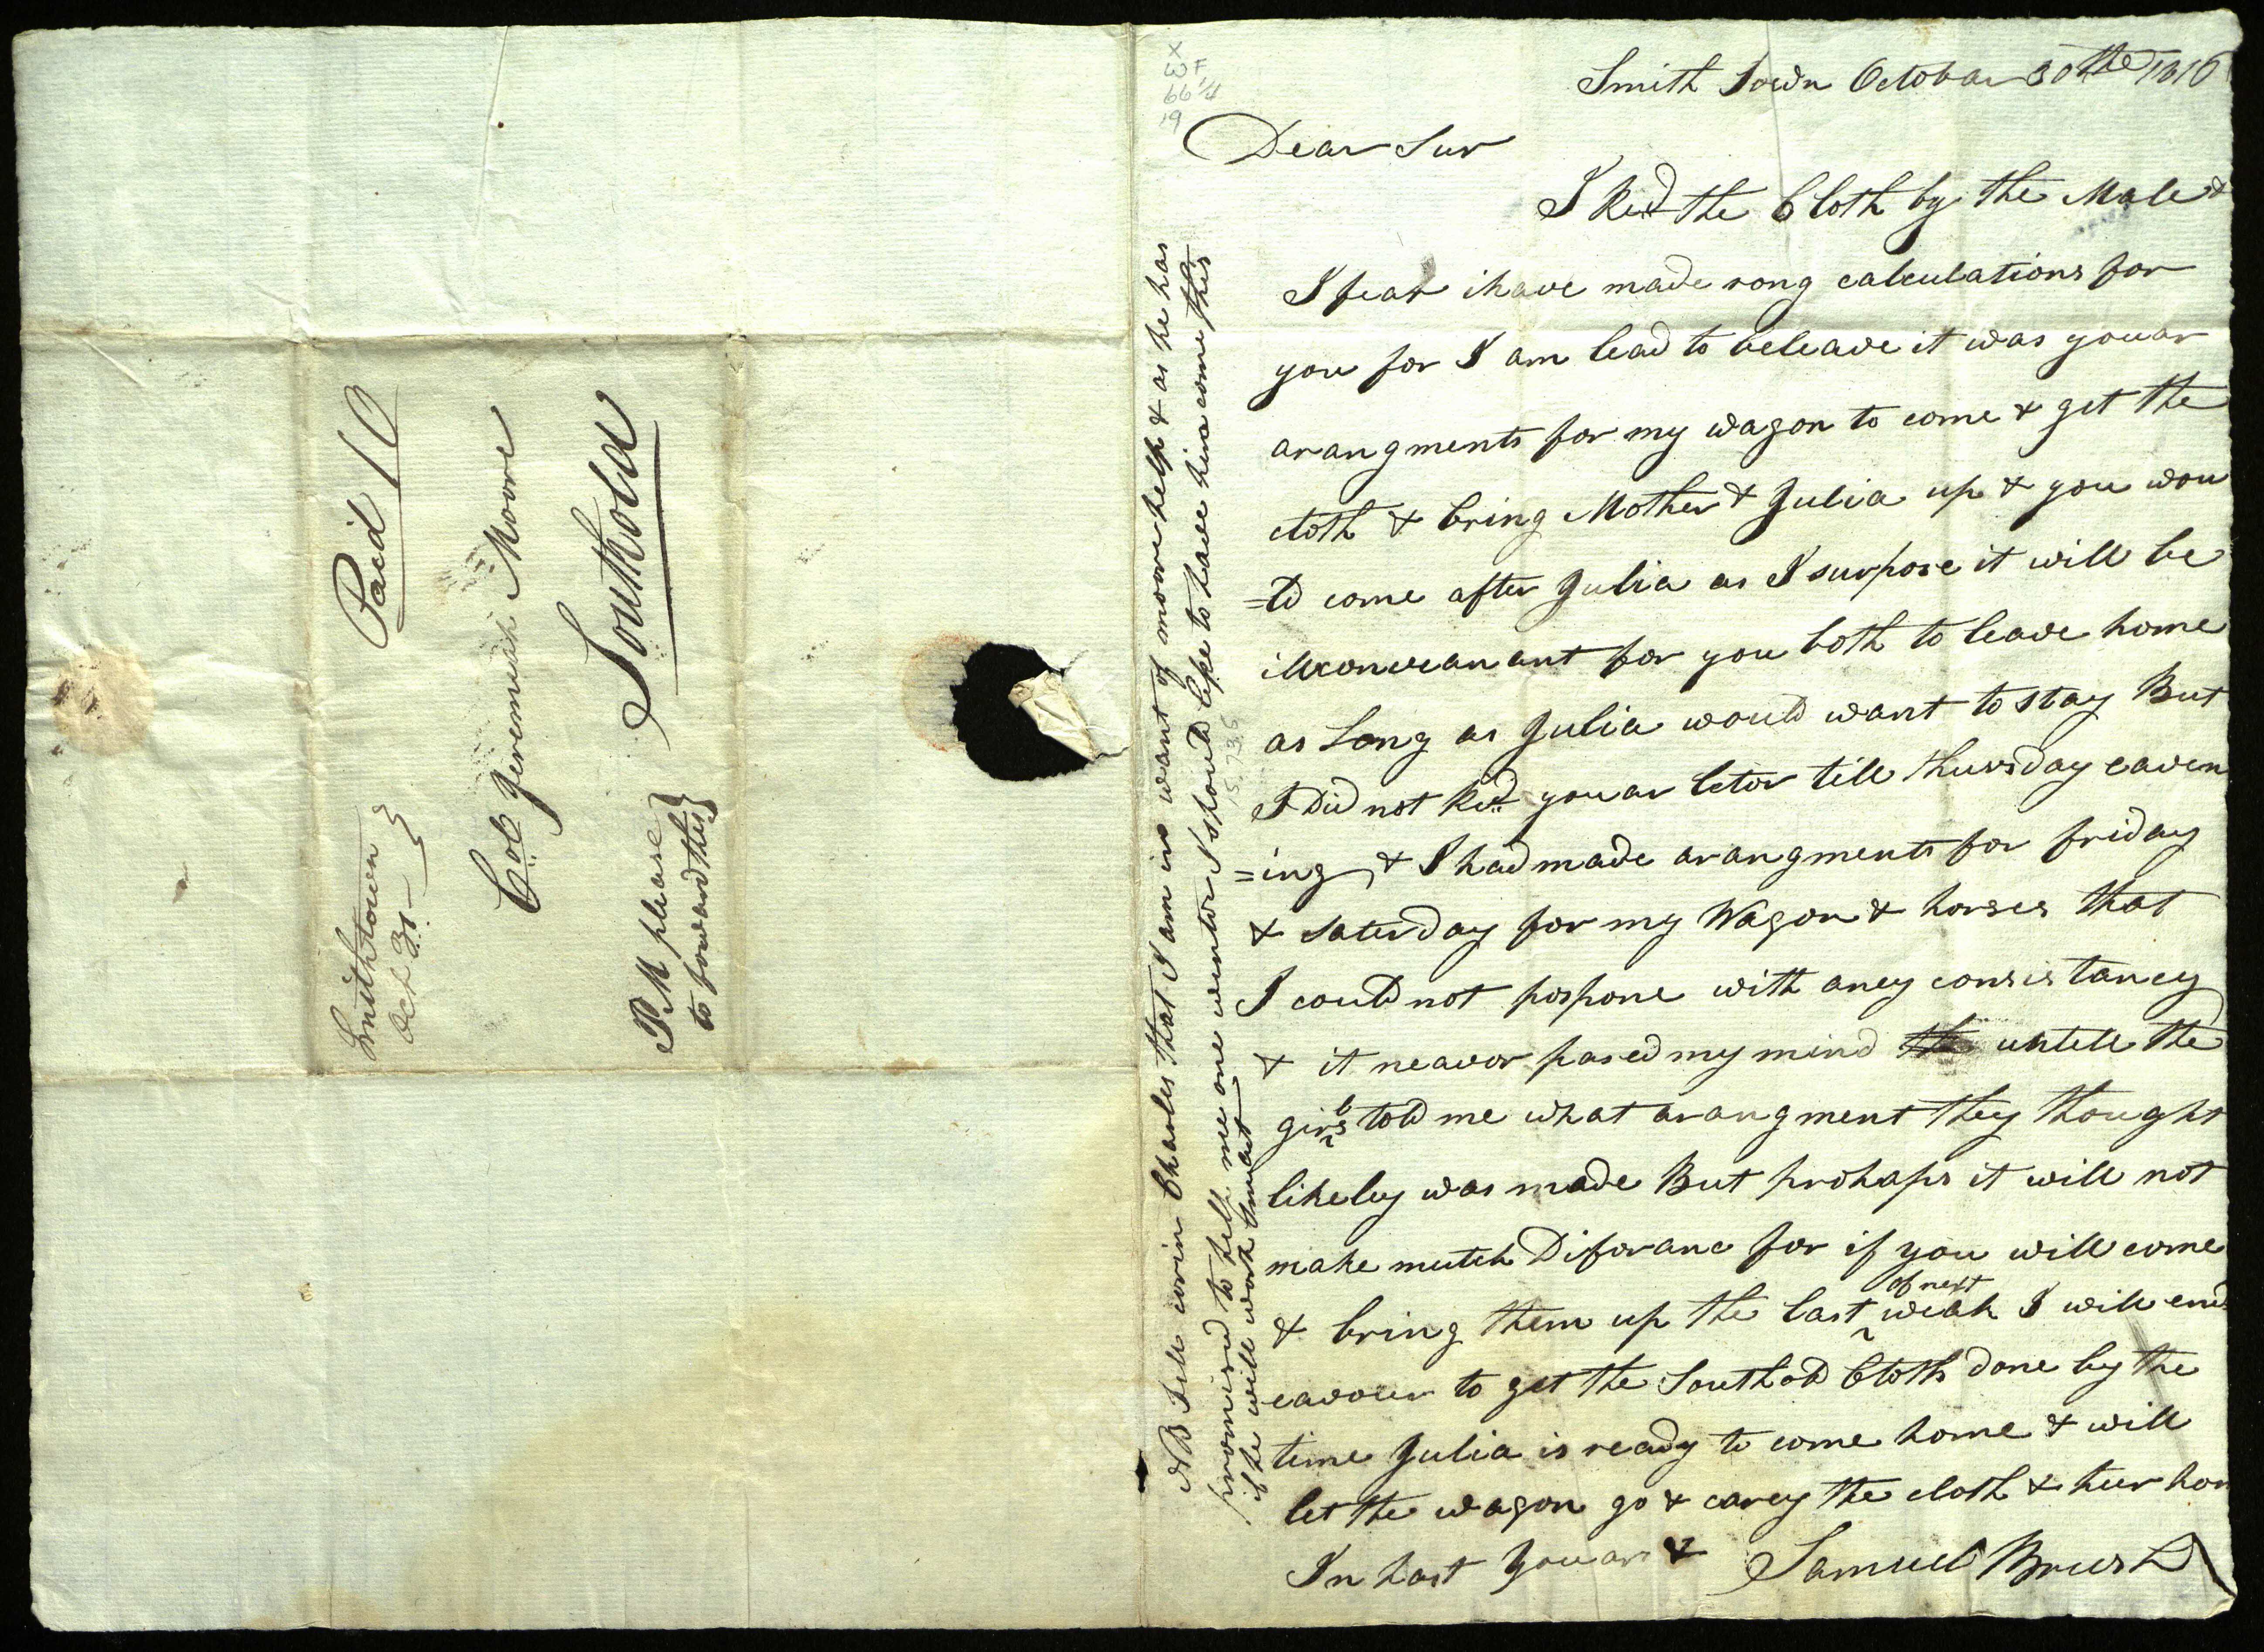 Smith Town October 30the 1816
Dear Sur
I Red the Cloth by the Male &
I fear ihave made rong calculations for
you for I am lead to beleave it was youar
arangments for my wagon to come & get the
cloth & bring Mother & Julia up & you wou
=ld come after Julia as I surpose it will be
illconveanant for you both to leave home
as Long as Julia would want to stay But
I Did not Red youar letor till thursday eaven
=ing & I had made arangments for friday
& saterday for my Wagon & horses that
I could not pospone with aney consistancy
& it neavor pased my mind untill the
girls told me what arangment they thought
likeley was made But prohaps it will not
make mutch Diforanc for if you will come
& bring them up the last of next weak I will end
eavour to get the Southold Cloth done by the
time Julia is ready to come home & will
let the wagon go & carey the cloth & heer hom
In hast youar & Samuel Brush
NB Tell Charles that I am in want of moore help & as he has
promised to help me one wintor I should like to have him come this
if he will work smart
X
WF
66 1/4
19
15,735
Smithtown
Oct 31
Paid 10
Col Jeremiah Moore
Southold
PM please
to forward this